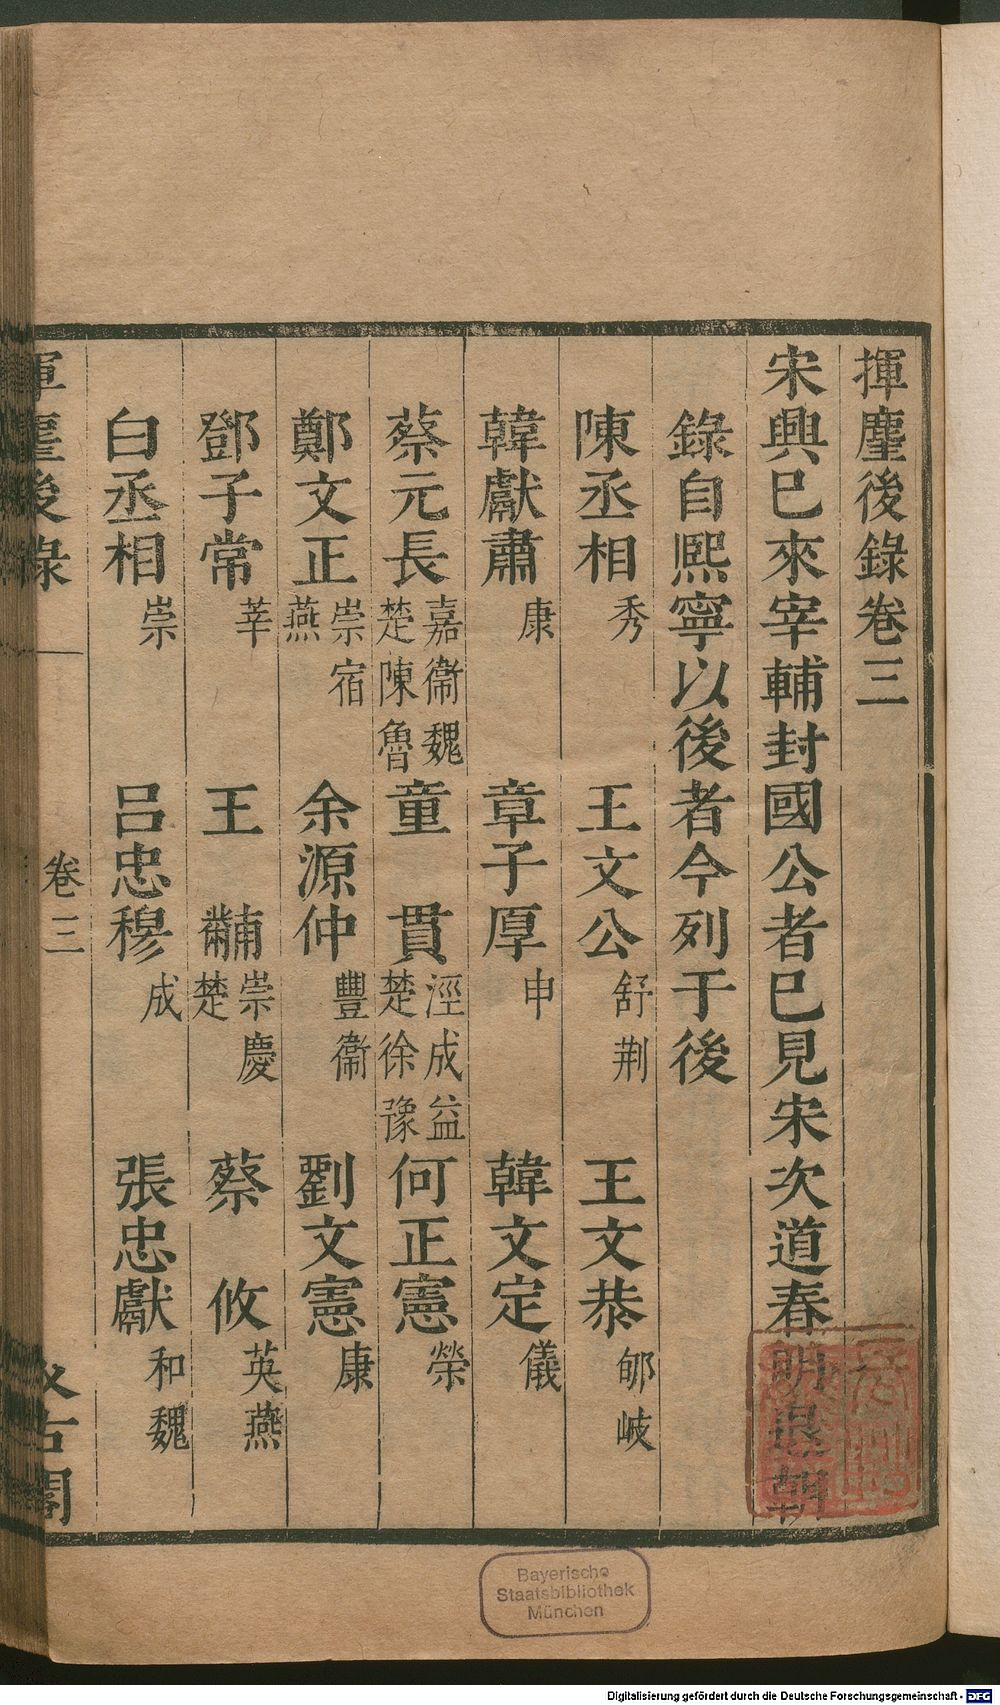 揮麈後錄卷三
宋興巳來宰輔封國公者巳見宋次道春明退朝
錄自熙寧以後者今列于後
陳丞相 秀 王文公 舒荆 王文恭 郇岐
韓獻肅 康 章子厚 申 韓文定 儀
蔡元長 嘉衞魏楚陳魯 童貫 涇成益楚徐豫 何正憲 榮
鄭文正 崇宿燕 余源仲 豐衞 劉文憲 康
鄧子常 莘 王黼 崇慶楚 蔡攸 英燕
白丞相 崇 呂忠穆 成 張忠獻 和魏
揮麈後錄 卷三 汲古閣
Bayerische
Staatsbibliothek
München
Digitalisierung gefördert durch die Deutsche Forschungsgemeinschaft - DFG